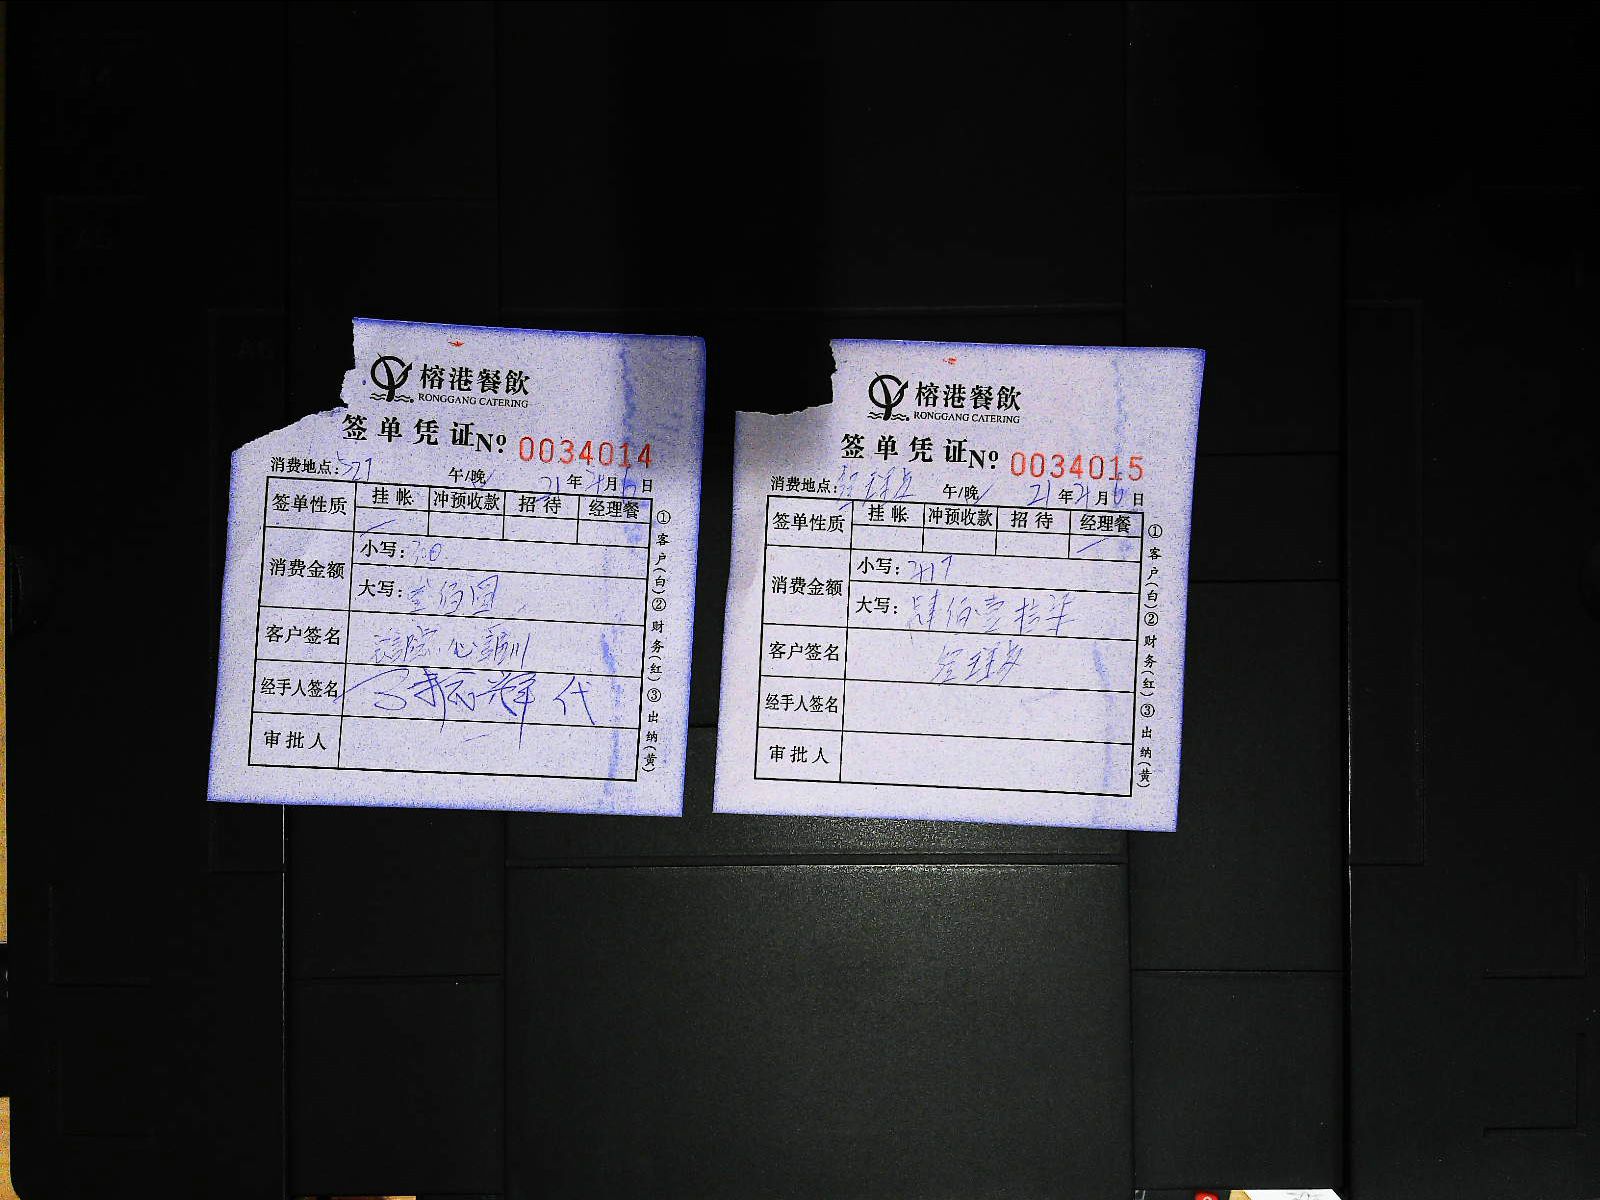 榕港餐飲
RONGGANG CATERING
签单凭证 Nº 0034014
消费地点: 527 午/晚 21年4月6日
签单性质 挂帐 冲预收款 招待 经理餐
消费金额 小写:
大写: 佰圆
客户签名
经手人签名 振辉代
审批人
①客户(白)②财务(红)③出纳(黄)
榕港餐飲
RONGGANG CATERING
签单凭证 Nº 0034015
消费地点: 午/晚 21年4月6日
签单性质 挂帐 冲预收款 招待 经理餐
消费金额 小写: 417
大写: 肆佰壹拾柒
客户签名
经手人签名
审批人
①客户(白)②财务(红)③出纳(黄)